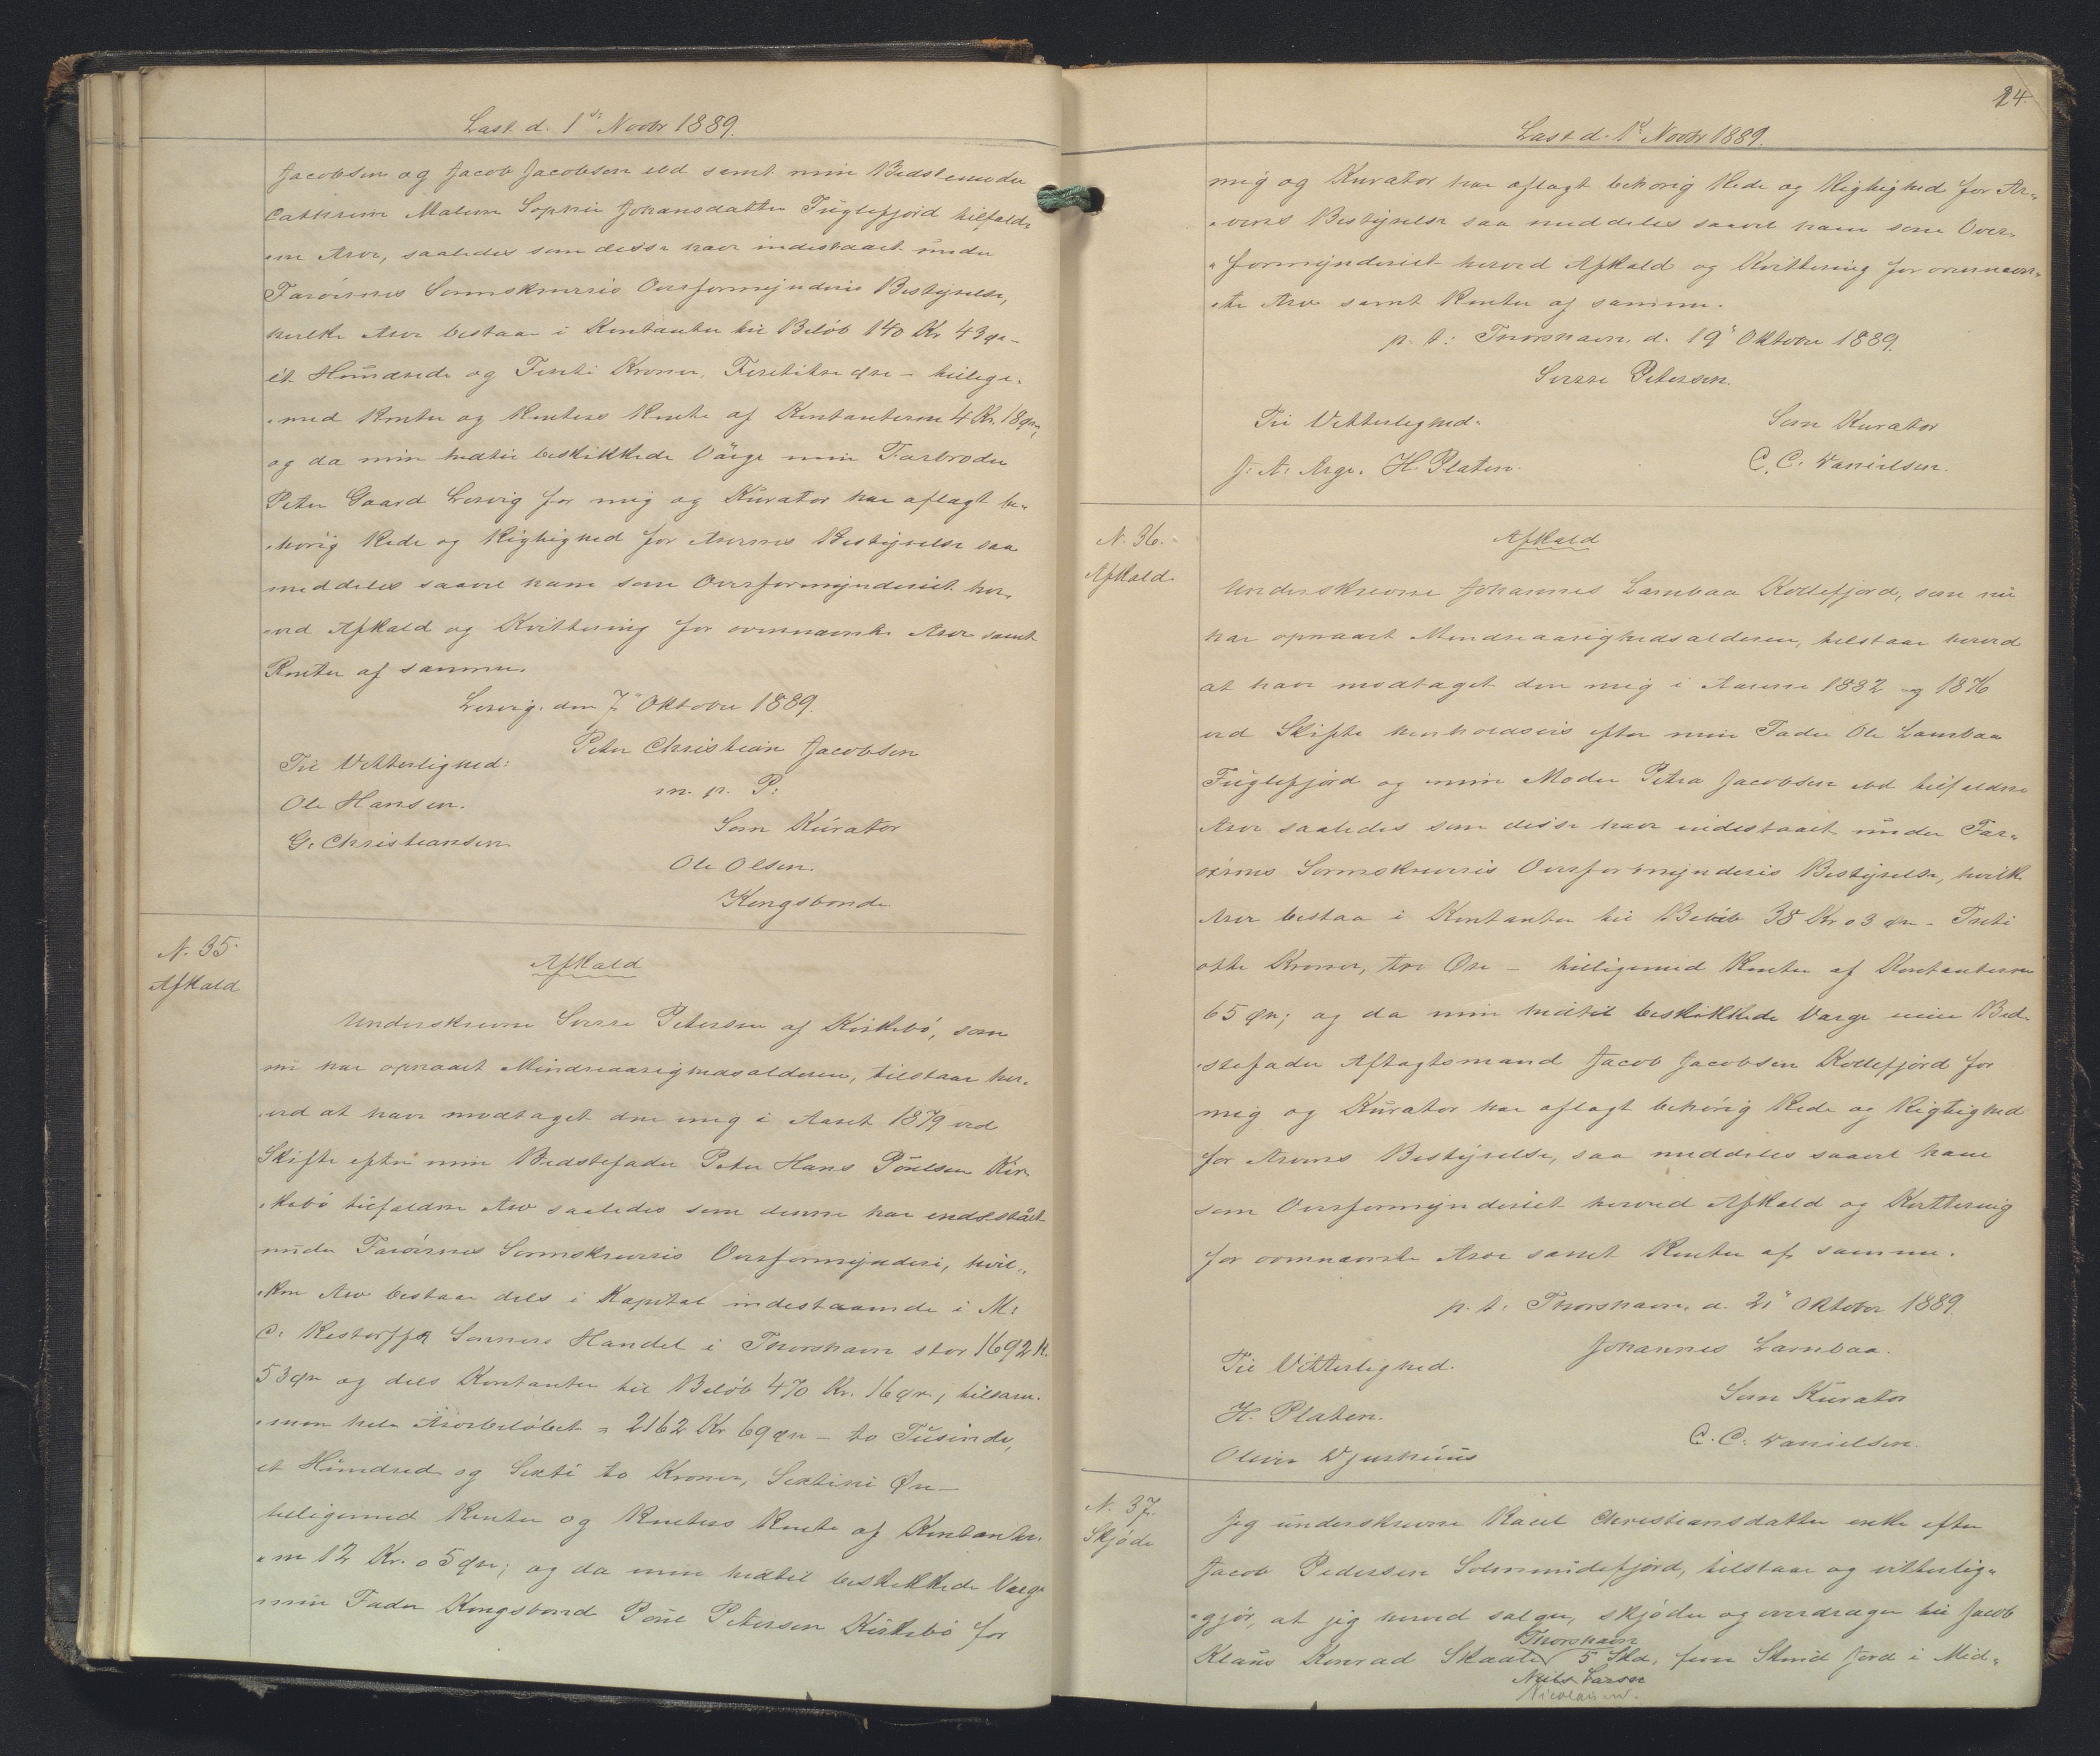 Læst d. 1ste Novbr 1889.
Jacobsen og Jacob Jacobsen ibd samt min Bedstemoder
Cathrine Malene Sophie Johansdatter Fuglefjord tilfald„
„ne Arve, saaledes som disse have indestaaet under
Færøernes Sorenskriveris Overformynderis Bestyrelse,
hvilke Arve bestaar i Kontanter til Beløb 140 Kr 43 Øre –
èt Hundrede og Firti Kroner, Firetitre Øre – tillige„
„med Renter og Renters Rente af Kontanterne 4 Kr. 18 Øre,
og da min hidtil beskikkede Værge min Farbroder
Peter Gaard Lervig for mig og Kurator har aflagt be„
„hørig Rede og Rigtighed for Arvenes Bestyrelse saa
meddeles saavel ham som Overformynderiet her„
„ved Afkald og Kvittering for ovennævnte Arve samt
Renter af samme.
Lervig, den 7" Oktober 1889.
Peter Christian Jacobsen
Til Vitterlighed:
m. p. P:
Ole Hansen.
Som Kurator
G. Christiansen
Ole Olsen.
Kongsbonde
N. 35
Afkald
Afkald
Underskrevne Sverre Petersen af Kirkebø, som
nu har opnaaet Mindreaarighedsalderen, tilstaar her„
„ved at have modtaget den mig i Aaret 1879 ved
Skifte efter min Bedstefader Peter Hans Poulsen Kir„
„kebø tilfaldne Arv saaledes som denne har indestået
under Færøernes Sorenskriveris Overformynderi, hvil„
„ken Arv bestaar dels i Kapital indestaaende i M:
C: Restorffs Sønners Handel i Thorshavn stor 1692 K.
53 Øre og dels Kontanter til Beløb 470 Kr. 16 Øre, tilsam„
„men hele Arvebeløbet = 2162 Kr 69 Øre – to Tusinde,
et Hundred og Sexti to Kroner, Sextini Øre –
tilligemed Renter og Renters Rente af Kontanter„
„ne 12 Kr. 05 Øre; og da min hidtil beskikkede Værge
min Fader Kongsbonde Poul Petersen Kirkebø for
24.
Læst d. 1ste Novbr 1889.
mig og Kurator har aflagt behørig Rede og Rigtighed for Ar„
„vens Bestyrelse saa meddeles saavel ham som Over„
„formynderiet herved Afkald og Kvittering for ovennævn„
„te Arv samt Renter af samme.
p. t: Thorshavn, d. 19" Oktober 1889.
Sverre Petersen.
Til Vitterlighed.
Som Kurator
J. A. Arge. H. Platen.
C. C. Danielsen.
N. 36.
Afkald.
Afkald
Underskrevne Johannes Lambaa Kollefjord, som nu
har opnaaet Mindreaarighedsalderen, tilstaar herved
at have modtaget den mig i Aarene 1882 og 1876
ved Skifte henholdsvis efter min Fader Ole Lambaa
Fuglefjord og min Moder Petra Jacobsen ibd tilfaldne
Arve saaledes som disse have indestaaet under Fær„
øernes Sorenskriveris Overformynderis Bestyrelse, hvilke
Arve bestaa i Kontanter til Beløb 38 Kr 03 Øre – Treti
otte Kroner, tre Øre – tilligemed Renter af Kontanterne
65 Øre; og da min hidtil beskikkede Værge min Bed„
„stefader Aftægtsmand Jacob Jacobsen Kollefjord for
mig og Kurator har aflagt behørig Rede og Rigtighed
for Arvens Bestyrelse, saa meddeles saavel ham
som Overformynderiet herved Afkald og Kvittering
for ovennævnte Arve samt Renter af samme.
p. t: Thorshavn, d. 21" Oktober 1889.
Johannes Lambaa.
Til Vitterlighed.
Som Kurator
H. Platen.
C. C: Danielsen.
Oliver Djurhuus
N. 37.
Skjøde
Jeg underskrevne Karil Christiansdatter enke efter
Jacob Pedersen Solmundefjord, tilstaar og vitterlig„
„gjør, at jeg herved sælger, skjøder og overdrager til Jacob
Thorshavn
Klaus Konrad Skaale 5 Skd, fem Skind Jord i Mid„
Niels Larsen
Nicolaisen.